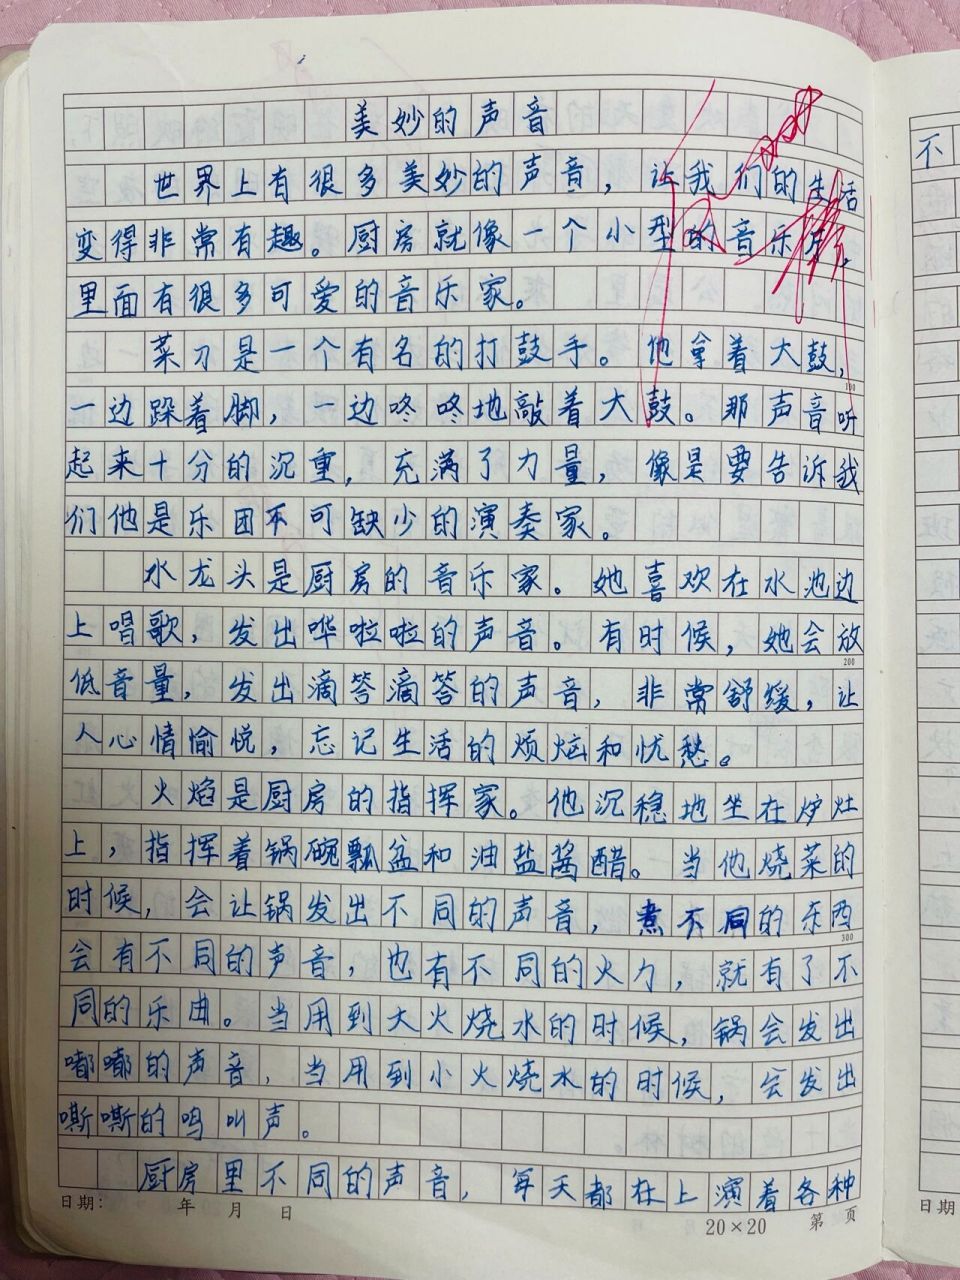 美妙的声音
世界上有很多美妙的声音，让我们的生活
变得非常有趣。厨房就像一个小型的音乐厅，
里面有很多可爱的音乐家。
菜刀是一个有名的打鼓手。他拿着大鼓，
100
一边跺着脚，一边咚咚地敲着大鼓。那声音听
起来十分的沉重，充满了力量，像是要告诉我
们他是乐团不可缺少的演奏家。
水龙头是厨房的音乐家。她喜欢在水池边
上唱歌，发出哗啦啦的声音。有时候，她会放
200
低音量，发出滴答滴答的声音，非常舒缓，让
人心情愉悦，忘记生活的烦恼和忧愁。
火焰是厨房的指挥家。他沉稳地坐在炉灶
上，指挥着锅碗瓢盆和油盐酱醋。当他烧菜的
时候，会让锅发出不同的声音，煮不同的东西
300
会有不同的声音，也有不同的火力，就有了不
同的乐曲。当用到大火烧水的时候，锅会发出
嘟嘟的声音，当用到小火烧水的时候，会发出
嘶嘶的鸣叫声。
厨房里不同的声音，每天都在上演着各种
日期： 年 月 日 20×20 第 页
不
日期